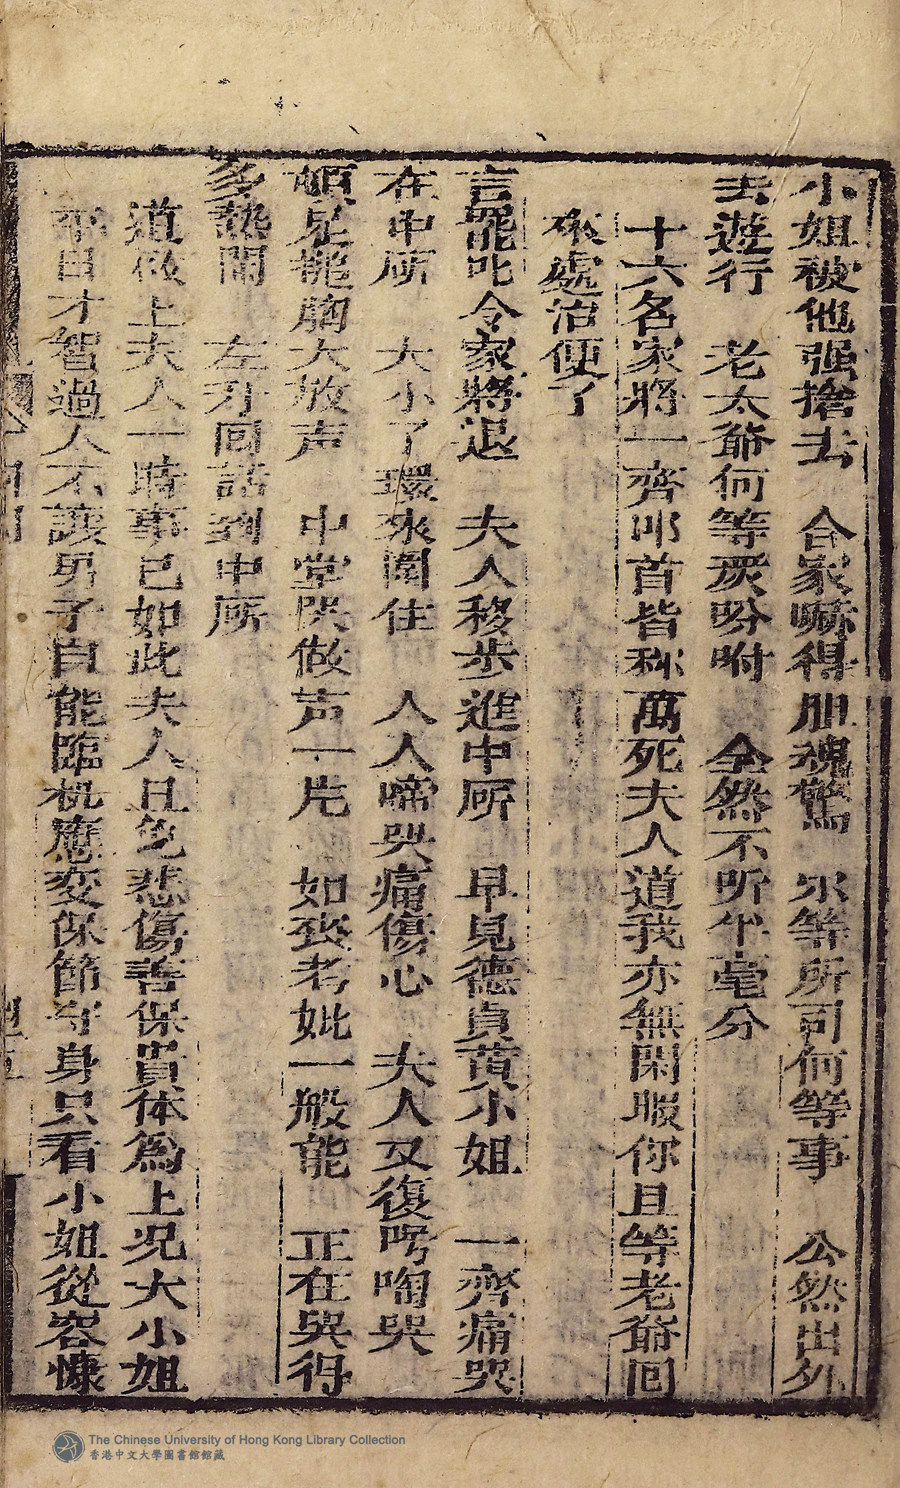 小姐被他强搶去　合家嚇得胆魂驚　尔等所司何等事　公然出外
去遊行　老太爺何等嚴吩咐　全然不听半毫分
十六名家將一齊叩首皆称萬死夫人道我亦無閑暇你且等老爺囘
來處治便了
言罷叱令家將退　夫人移步進中所　早見德貞黄小姐　一齊痛哭
在中所　大小了環來圍住　人人啼哭痛傷心　夫人又復咢啕哭
頓足搥胸大放声　中堂哄做声一片　如丧考妣一般能　正在哭得
多熱閙　左才囘話到中所
道做上夫人一時事已如此夫人且免悲傷善保貴体為上况大小姐
平日才智過人不讓男子自能臨机應变保節守身只看小姐從容慷
The Chinese University of Hong Kong Library Collection
香港中文大學圖書館館藏